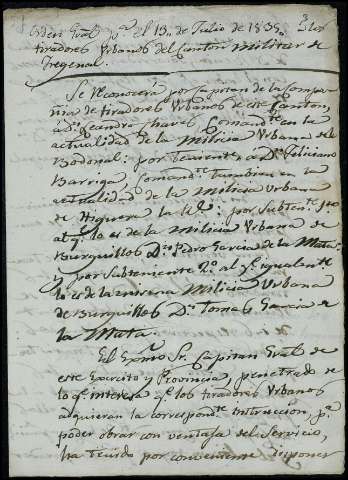 Orden Gral pª el 13, de Julio de 1835. á los
tiradores Urbanos del Canton militar de
Fregenal.
Se Reconocera por Capitan de la Compa
ñia de tiradores Urbanos de este Canton,
a Dn Leandro Chaves Comandte en la
actualidad de la Milicia Urbana de
Bodonal: por teniente a Dn Feliciano
Barriga, Comandte tambien en la
actualidad de la Milicia Urbana
de Higuera la Rl: por Subtente 1º
al q. lo es de la Milicia Urbana de
Burguillos Dn Pedro Garcia de la Mata
y por Subteniente 2º al q. igualmente
lo es de la misma Milicia Urbana
de Burguillos Dn Tomas Garcia de
la Mata.
El Exmo Sr. Capitan Gral de
este Exercito y Provincia, penetrado de
lo q. interesa q. los tiradores Urbanos
adquieran la correspondte Instruccion, pª
poder obrar con ventaja del Servicio,
ha tenido por conveniente disponer